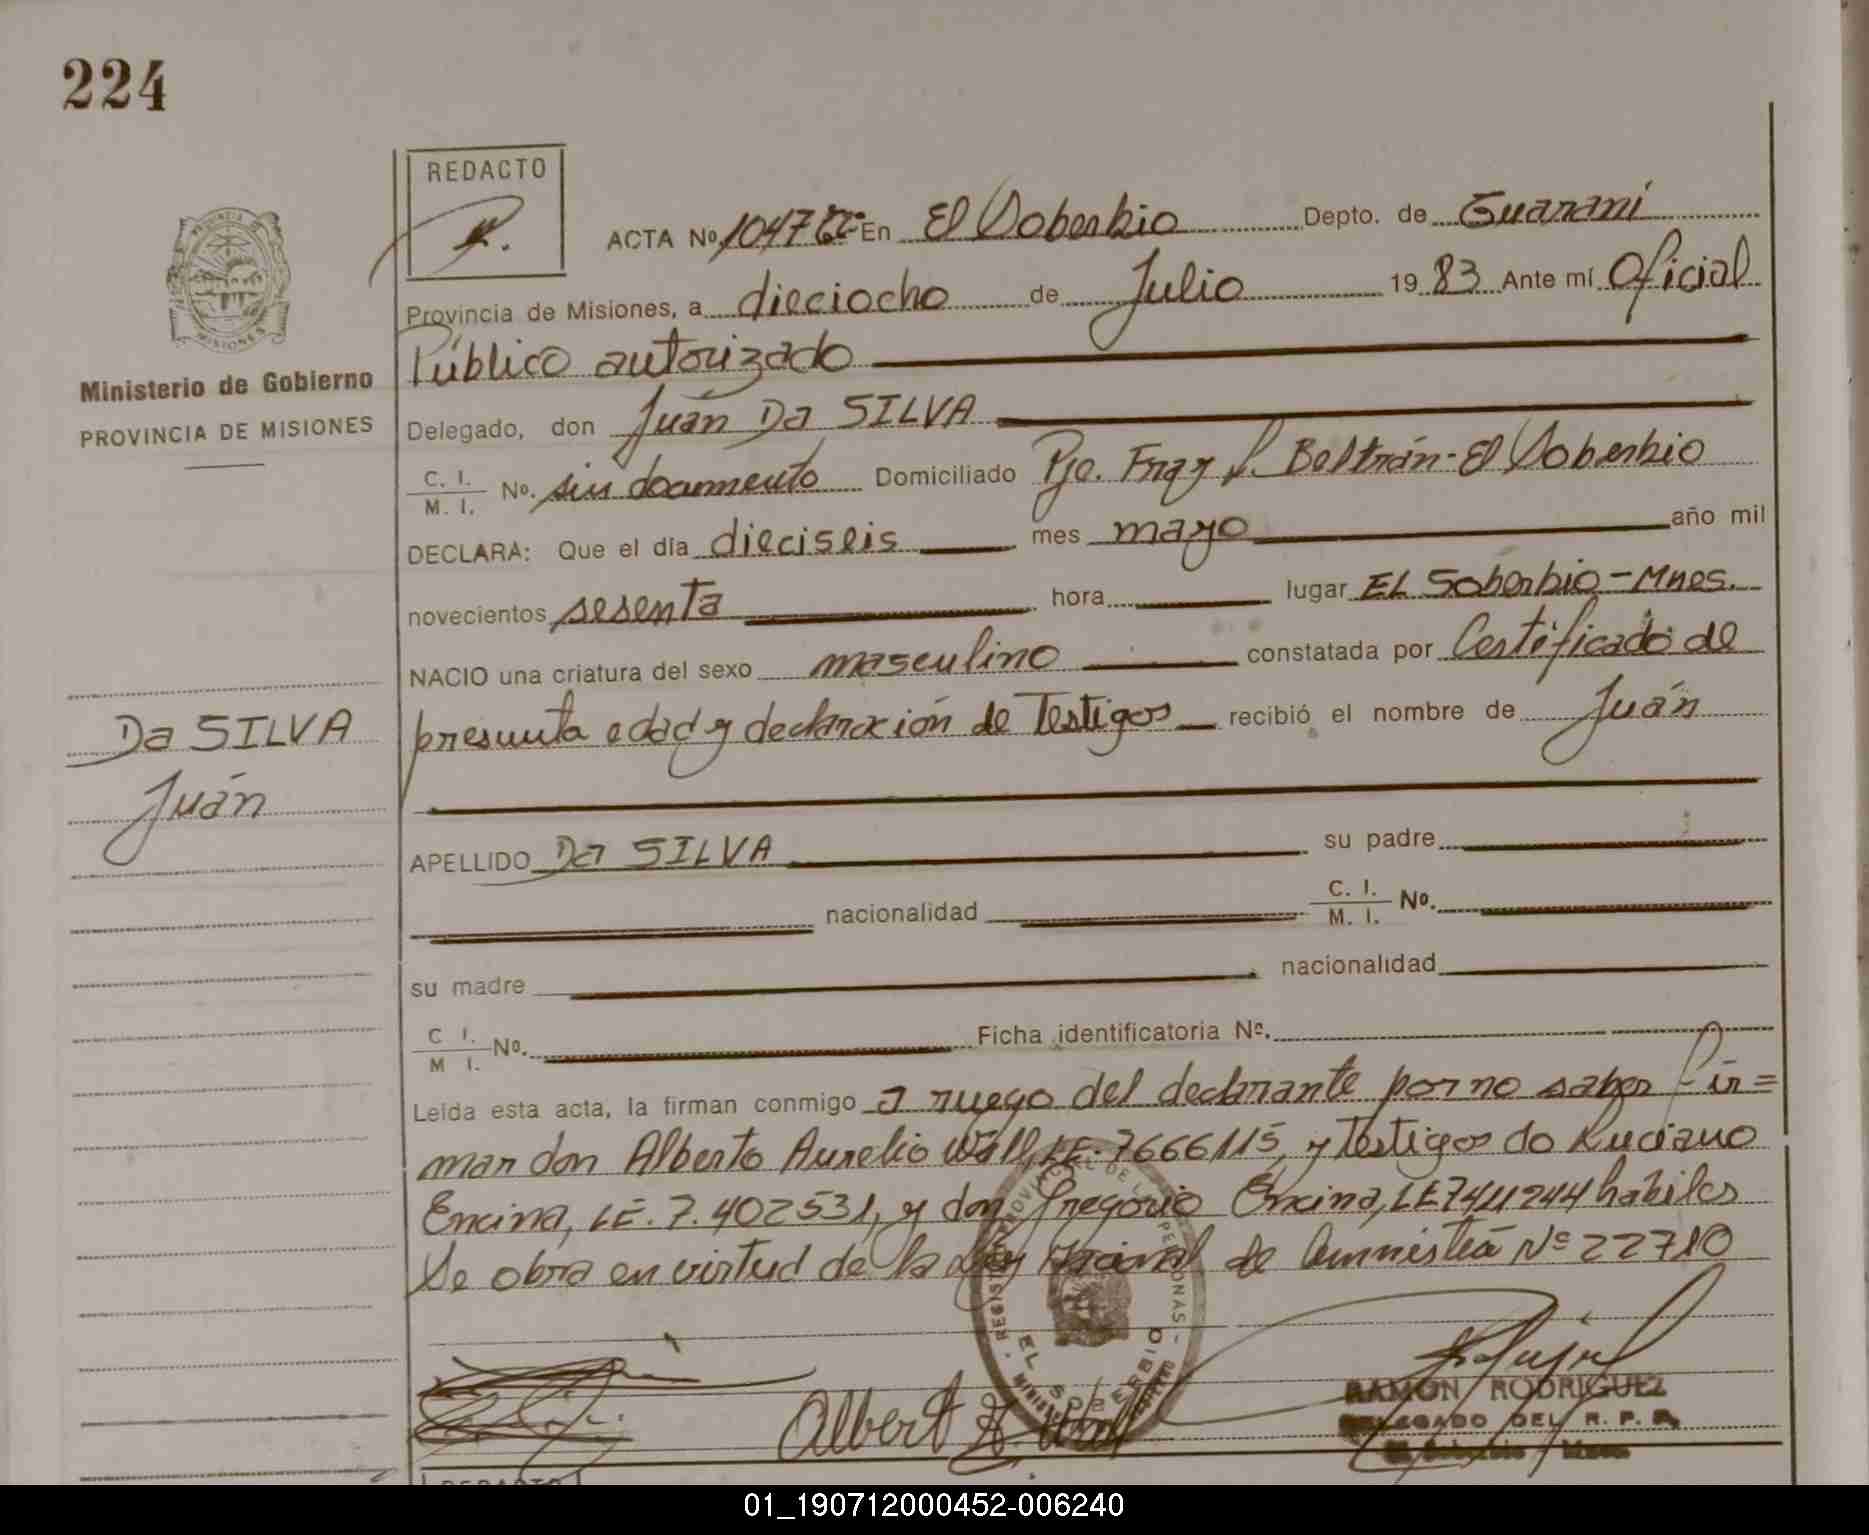 224
REDACTO
ACTA Nº 1047 En El Soberbio Depto. de Guaraní
Provincia de Misiones, a dieciocho de Julio 19 83 Ante mí Oficial
Público autorizado
Ministerio de Gobierno
PROVINCIA DE MISIONES
Delegado, don Juán Da SILVA
C. I.
M. I. Nº. sin documento Domiciliado Pje. Fray L. Beltrán - El Soberbio
DECLARA: Que el día dieciseis mes mayo año mil
novecientos sesenta hora lugar EL Soberbio - Mnes.
NACIO una criatura del sexo masculino constatada por Certificado de
presunta edad y declaración de Testigos recibió el nombre de Juán
Da SILVA
Juán
APELLIDO Da SILVA su padre
nacionalidad C. I.
M. I. Nº.
su madre nacionalidad
C. I.
M. I. Nº. Ficha identificatoria Nº.
Leída esta acta, la firman conmigo a ruego del declarante por no saber fir=
mar don Alberto Aurelio Wall, LE. 7666115, y testigos do Luciano
Encina, LE. 7.402531, y don Gregorio Encina, LE 7411244 habiles
Se obra en virtud de la Ley Nacional de Amnistía Nº 22710
EL SOBERBIO
Albert A. Wall
RAMON RODRIGUEZ
DELEGADO DEL R. P. P.
El Soberbio - Mnes.
REDACTO
01_190712000452-006240